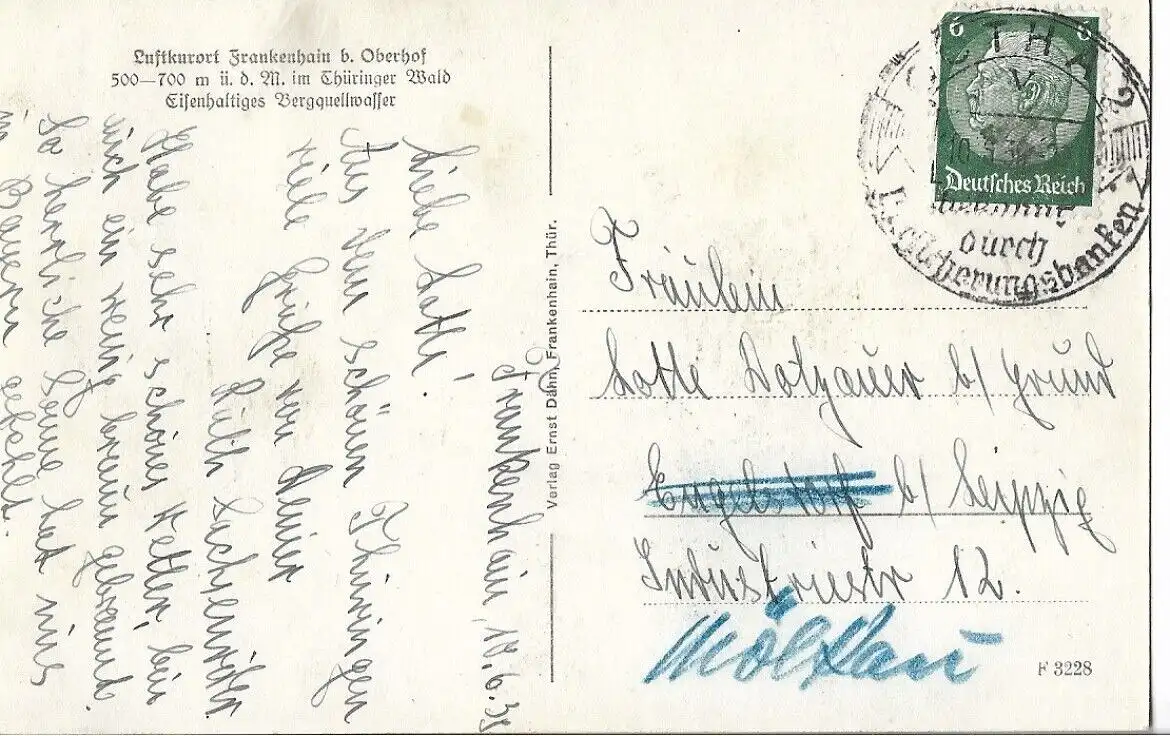 Luftkurort Frankenhain b. Oberhof
500—700 m ü. d. M. im Thüringer Wald
Eisenhaltiges Bergquellwasser
Frankenhain, 10.6.3
Liebe Lotte!
Aus dem schönen Thüringen
viele Grüße von Deiner
Ruth
Habe sehr schönes Wetter, bin
auch ein wenig braun gebrannt.
So herrliche Sonne hat uns
in Bayern gefehlt.
Verlag Ernst Dähn, Frankenhain, Thür.
6 6
Deutsches Reich
GOTHA 2
V
10
durch
Versicherungsbanken
Fräulein
Lotte Dotzauer b/ Grund
Engelsdorf b/ Leipzig
Industriestr 12.
Mölkau
F 3228